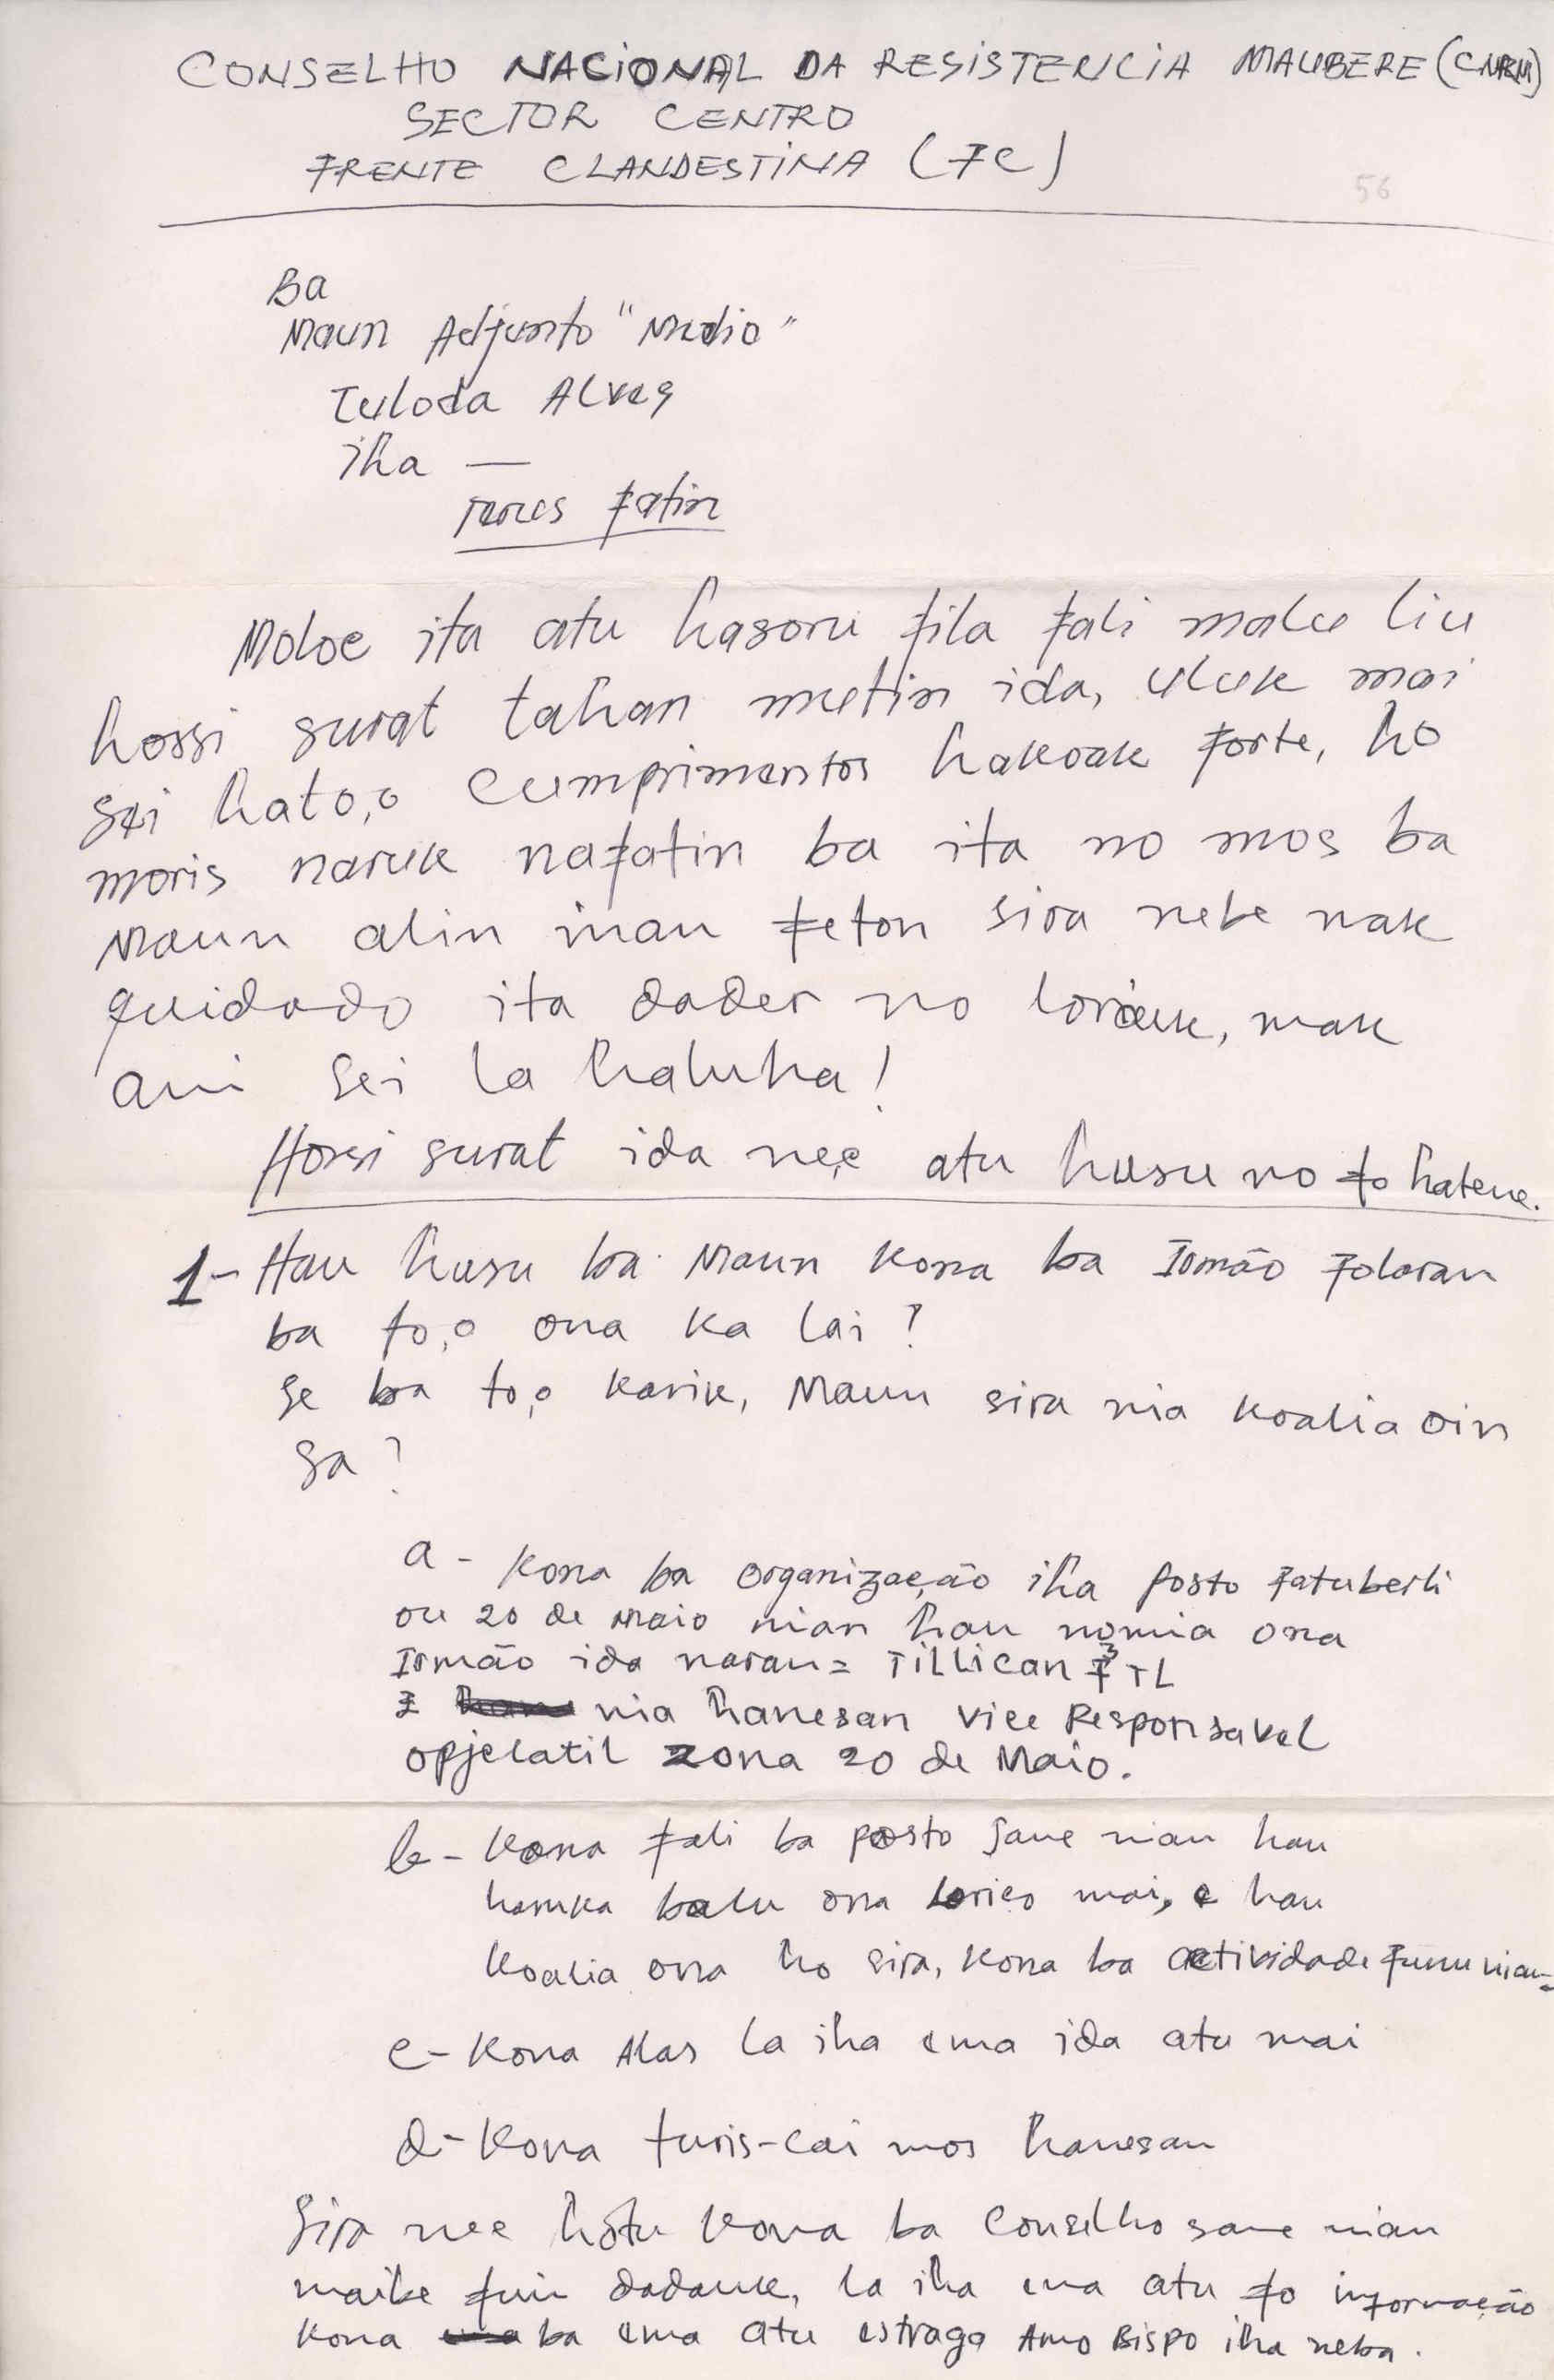 CONSELHO NACIONAL DA RESISTENCIA MAUBERE (CNRM)
SECTOR CENTRO
FRENTE CLANDESTINA (FC)
56
Ba
Maun Adjunto "Mudio"
Tuloda Alves
iha —
Fatin
Moloc ita atu hasoru fila fali malu liu
hossi surat tahan mutin ida, uluk mai
sei hato,o cumprimentos hakoak forte, ho
moris naruk nafatin ba ita no mos ba
Maun alin inan feton sira nebe nak
quidado ita dader no loraik, mak
ami sei la haluha!
Hossi surat ida nee atu husu no fo hatene.
1- Hau husu ba Maun kona ba Irmão Folaran
ba to,o ona ka lai?
se ba to,o karik, Maun sira nia koalia oin
sa?
a - Kona ba organização iha posto Fatuberli
ou 20 de Maio nian hau nomia ona
Irmão ida naran= TILLICAN F3TL
nia hanesan vice Responsavel
opjelatil zona 20 de Maio.
b- Kona fali ba posto Same nian hau
haruka balu ona Lorico mai, e hau
koalia ona ho sira, kona ba actividade funu nian-
c- Kona Alas la iha ema ida atu mai
d- Kona turis-cai mos hanesan
Sira nee hotu kona ba Conselho same nian
maibe fuin dadauk, la iha ema atu fo informação
kona ba ema atu estraga Amo Bispo iha neba.